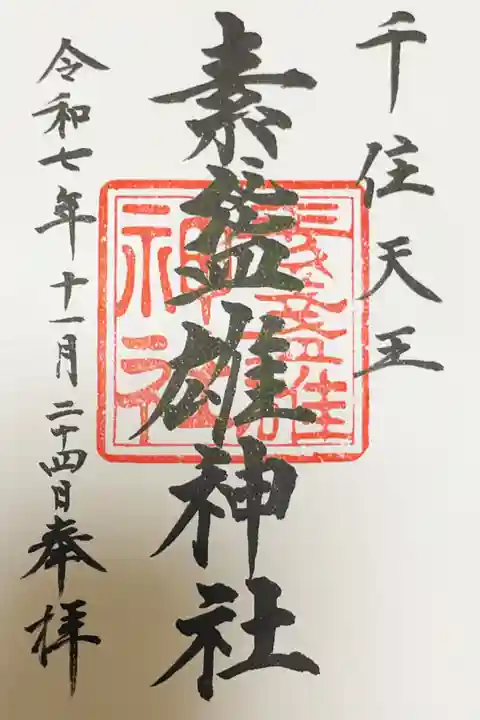 千住天王
素盞雄神社
令和七年十一月二十四日奉拝
素盞雄
神社